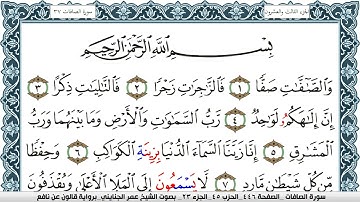 سورة الصافات ٣٧
الجزء الثالث والعشرون
بِسْمِ اللَّهِ الرَّحْمَٰنِ الرَّحِيمِ
وَالصَّٰٓفَّٰتِ صَفّٗا ١ فَالزَّٰجِرَٰتِ زَجْرٗا ٢ فَالتَّٰلِيَٰتِ ذِكْرًا ٣
إِنَّ إِلَٰهَكُمُۥ لَوَٰحِدٞ ٤ رَّبُّ السَّمَٰوَٰتِ وَالْأَرْضِ وَمَا بَيْنَهُمَا وَرَبُّ
الْمَشَٰرِقِ ٥ إِنَّا زَيَّنَّا السَّمَآءَ الدُّنْيَا بِزِينَةِ الْكَوَاكِبِ ٦ وَحِفْظٗا
مِّن كُلِّ شَيْطَٰنٖ مَّارِدٖ ٧ لَا يَسْمَعُونَ إِلَى الْمَلَإِ الْأَعْلَىٰ وَيُقْذَفُونَ
سورة الصافات . الصفحة ٤٤٦ الحزب ٤٥ . الجزء ٢٣ . بصوت الشيخ عمر الجنايني . برواية قالون عن نافع